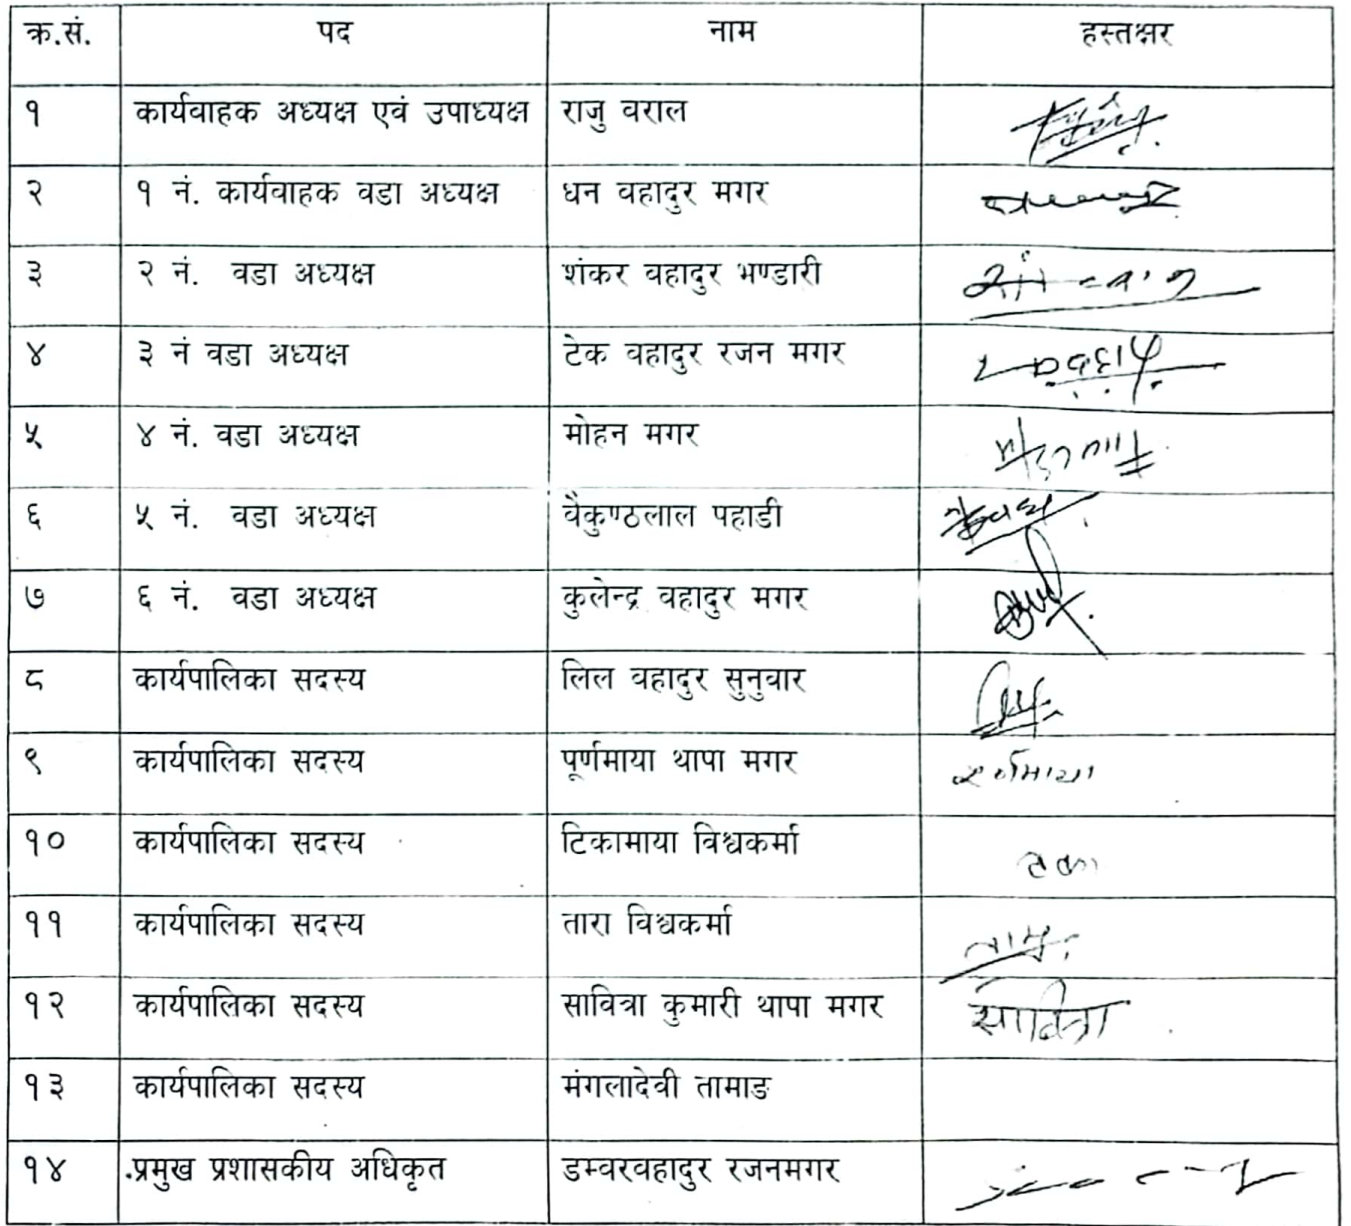 क्र.सं. पद नाम हस्तक्षर
१ कार्यवाहक अध्यक्ष एवं उपाध्यक्ष राजु वराल
२ १ नं. कार्यवाहक वडा अध्यक्ष धन वहादुर मगर
३ २ नं. वडा अध्यक्ष शंकर वहादुर भण्डारी
४ ३ नं वडा अध्यक्ष टेक वहादुर रजन मगर
५ ४ नं. वडा अध्यक्ष मोहन मगर
६ ५ नं. वडा अध्यक्ष वैकुण्ठलाल पहाडी
७ ६ नं. वडा अध्यक्ष कुलेन्द्र वहादुर मगर
८ कार्यपालिका सदस्य लिल वहादुर सुनुवार
९ कार्यपालिका सदस्य पूर्णमाया थापा मगर
१० कार्यपालिका सदस्य टिकामाया विश्वकर्मा
११ कार्यपालिका सदस्य तारा विश्वकर्मा
१२ कार्यपालिका सदस्य सावित्रा कुमारी थापा मगर सावित्रा
१३ कार्यपालिका सदस्य मंगलादेवी तामाङ
१४ प्रमुख प्रशासकीय अधिकृत डम्वरवहादुर रजनमगर